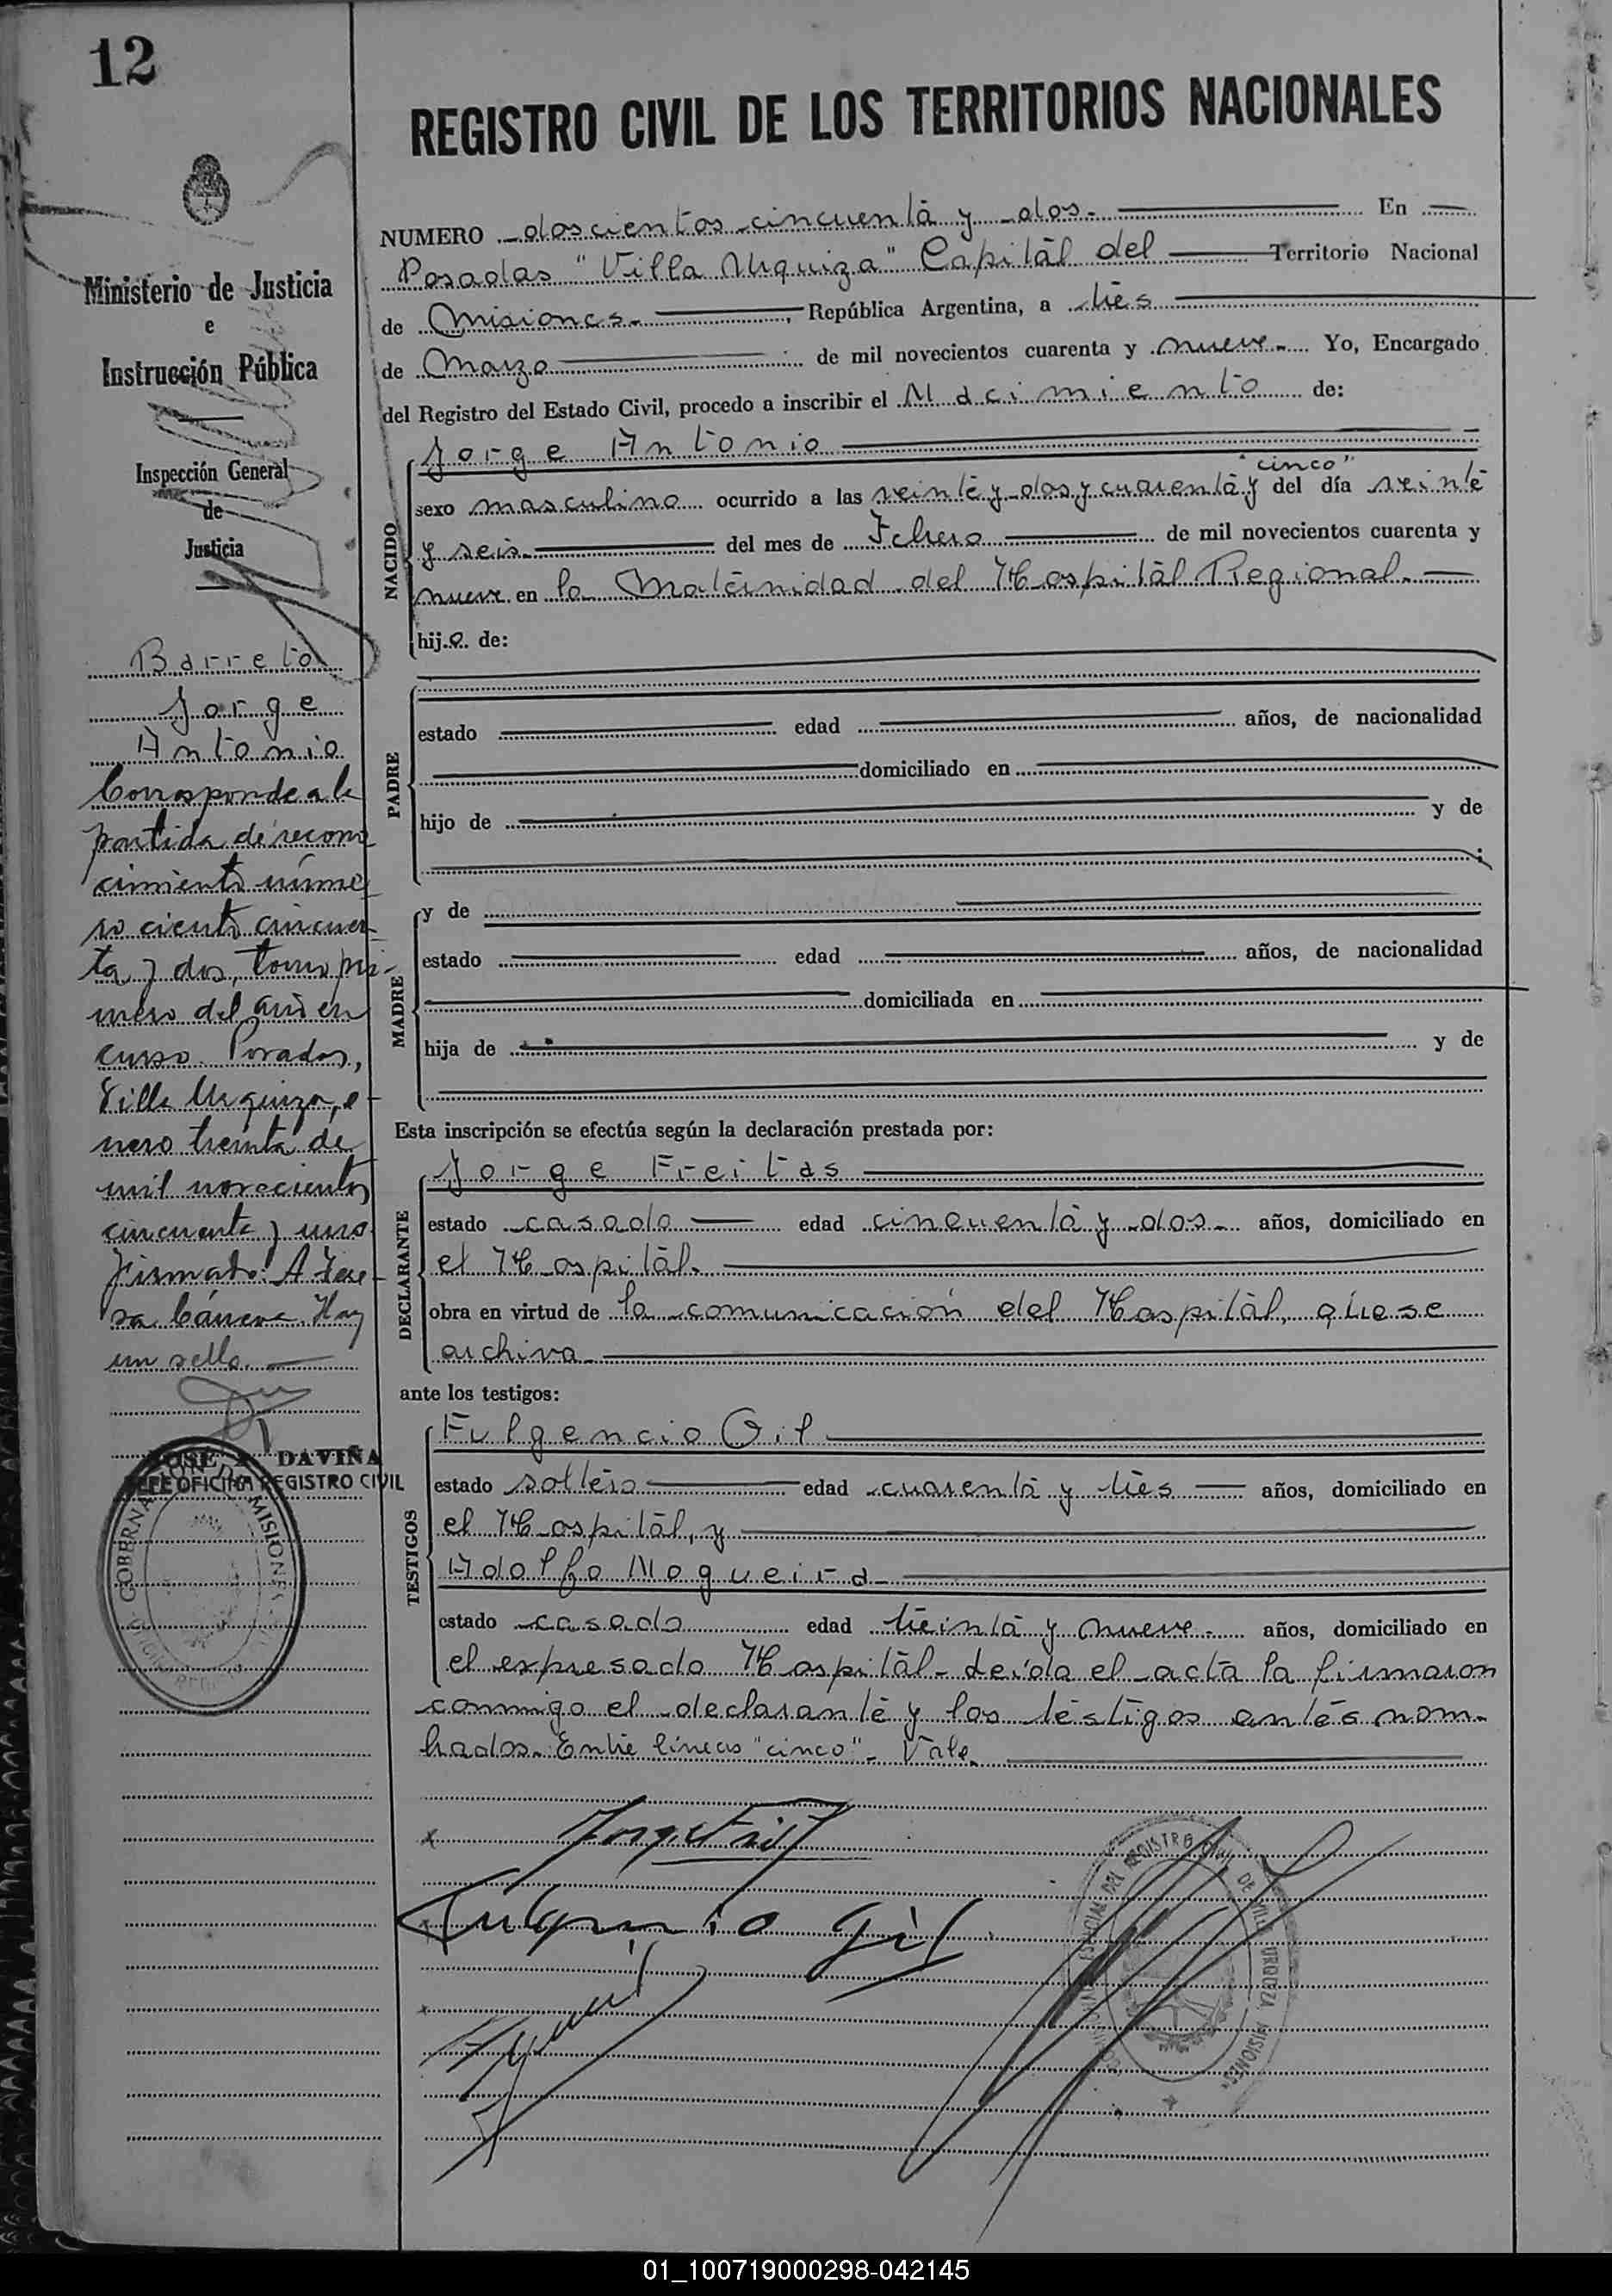 12
REGISTRO CIVIL DE LOS TERRITORIOS NACIONALES
NUMERO doscientos cincuenta y dos.- En
Posadas "Villa Urquiza" Capital del Territorio Nacional
de Misiones.- , República Argentina, a tres
de Marzo de mil novecientos cuarenta y nueve.- Yo, Encargado
del Registro del Estado Civil, procedo a inscribir el Nacimiento de:
Jorge Antonio
"cinco"
sexo masculino ocurrido a las veinte y dos y cuarenta y del día veinte
y seis.- del mes de Febrero de mil novecientos cuarenta y
nueve en la Maternidad del Hospital Regional.-
hijo de:
NACIDO
estado edad años, de nacionalidad
domiciliado en
hijo de y de
;
PADRE
y de
estado edad años, de nacionalidad
domiciliada en
hija de y de
MADRE
Esta inscripción se efectúa según la declaración prestada por:
Jorge Freitas
estado casado edad cincuenta y dos.- años, domiciliado en
el Hospital.-
obra en virtud de la comunicación del Hospital, que se
archiva.-
DECLARANTE
ante los testigos:
Fulgencio Gil
estado soltero edad cuarenta y tres años, domiciliado en
el Hospital, y
Adolfo Nogueira-
estado casado edad treinta y nueve.- años, domiciliado en
TESTIGOS
el expresado Hospital.- Leída el acta la firmaron
conmigo el declarante y los testigos antes nom-
brados.- Entre líneas "cinco".- Vale.
Fulgencio Gil
Ministerio de Justicia
e
Instrucción Pública
Inspección General
de
Justicia
Barreto
Jorge
Antonio
Corresponde a la
partida de recono
cimiento núme
ro ciento cincuen-
ta y dos, tomo pri-
mero del año en
curso. Posadas,
Villa Urquiza, e-
nero treinta de
mil novecientos
cincuenta y uno.
Firmado: A
Hay
un sello.
JOSE DAVIÑA
JEFE OFICINA REGISTRO CIVIL
GOBERNACION DE MISIONES
DEL REGISTRO CIVIL DE VILLA URQUIZA MISIONES
01_100719000298-042145